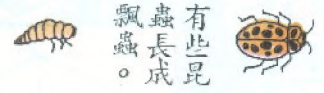 有些昆
蟲長成
瓢蟲。